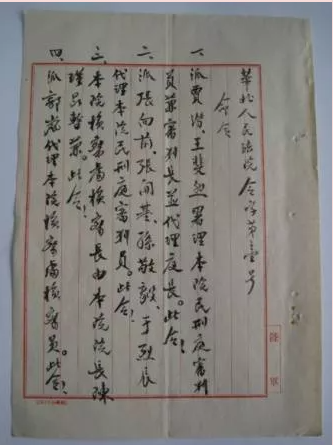 華北人民法院令字第壹号
命令
一、派賈潛、王斐然署理本院民刑庭審判
員兼審判長並代理庭長。此令！
二、派張向前、張聞基、孫敬毅、于烈辰
代理本院民刑庭審判員。此令！
三、本院檢察處檢察長由本院院長陳
瑾昆暫兼。此令！
四、派郭嵐代理本院檢察處檢察員。此令！